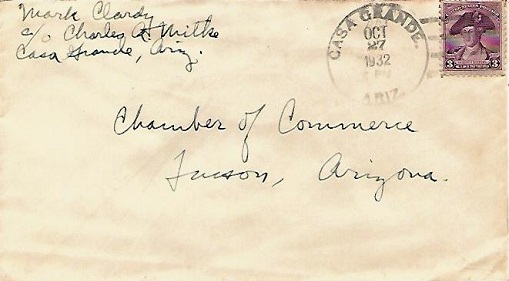 Mark Clardy
c/o Charles A. Mitke
Casa Grande, Ariz.
CASA GRANDE,
OCT
27
1932
ARIZ.
3 3
Chamber of Commerce
Tucson, Arizona.